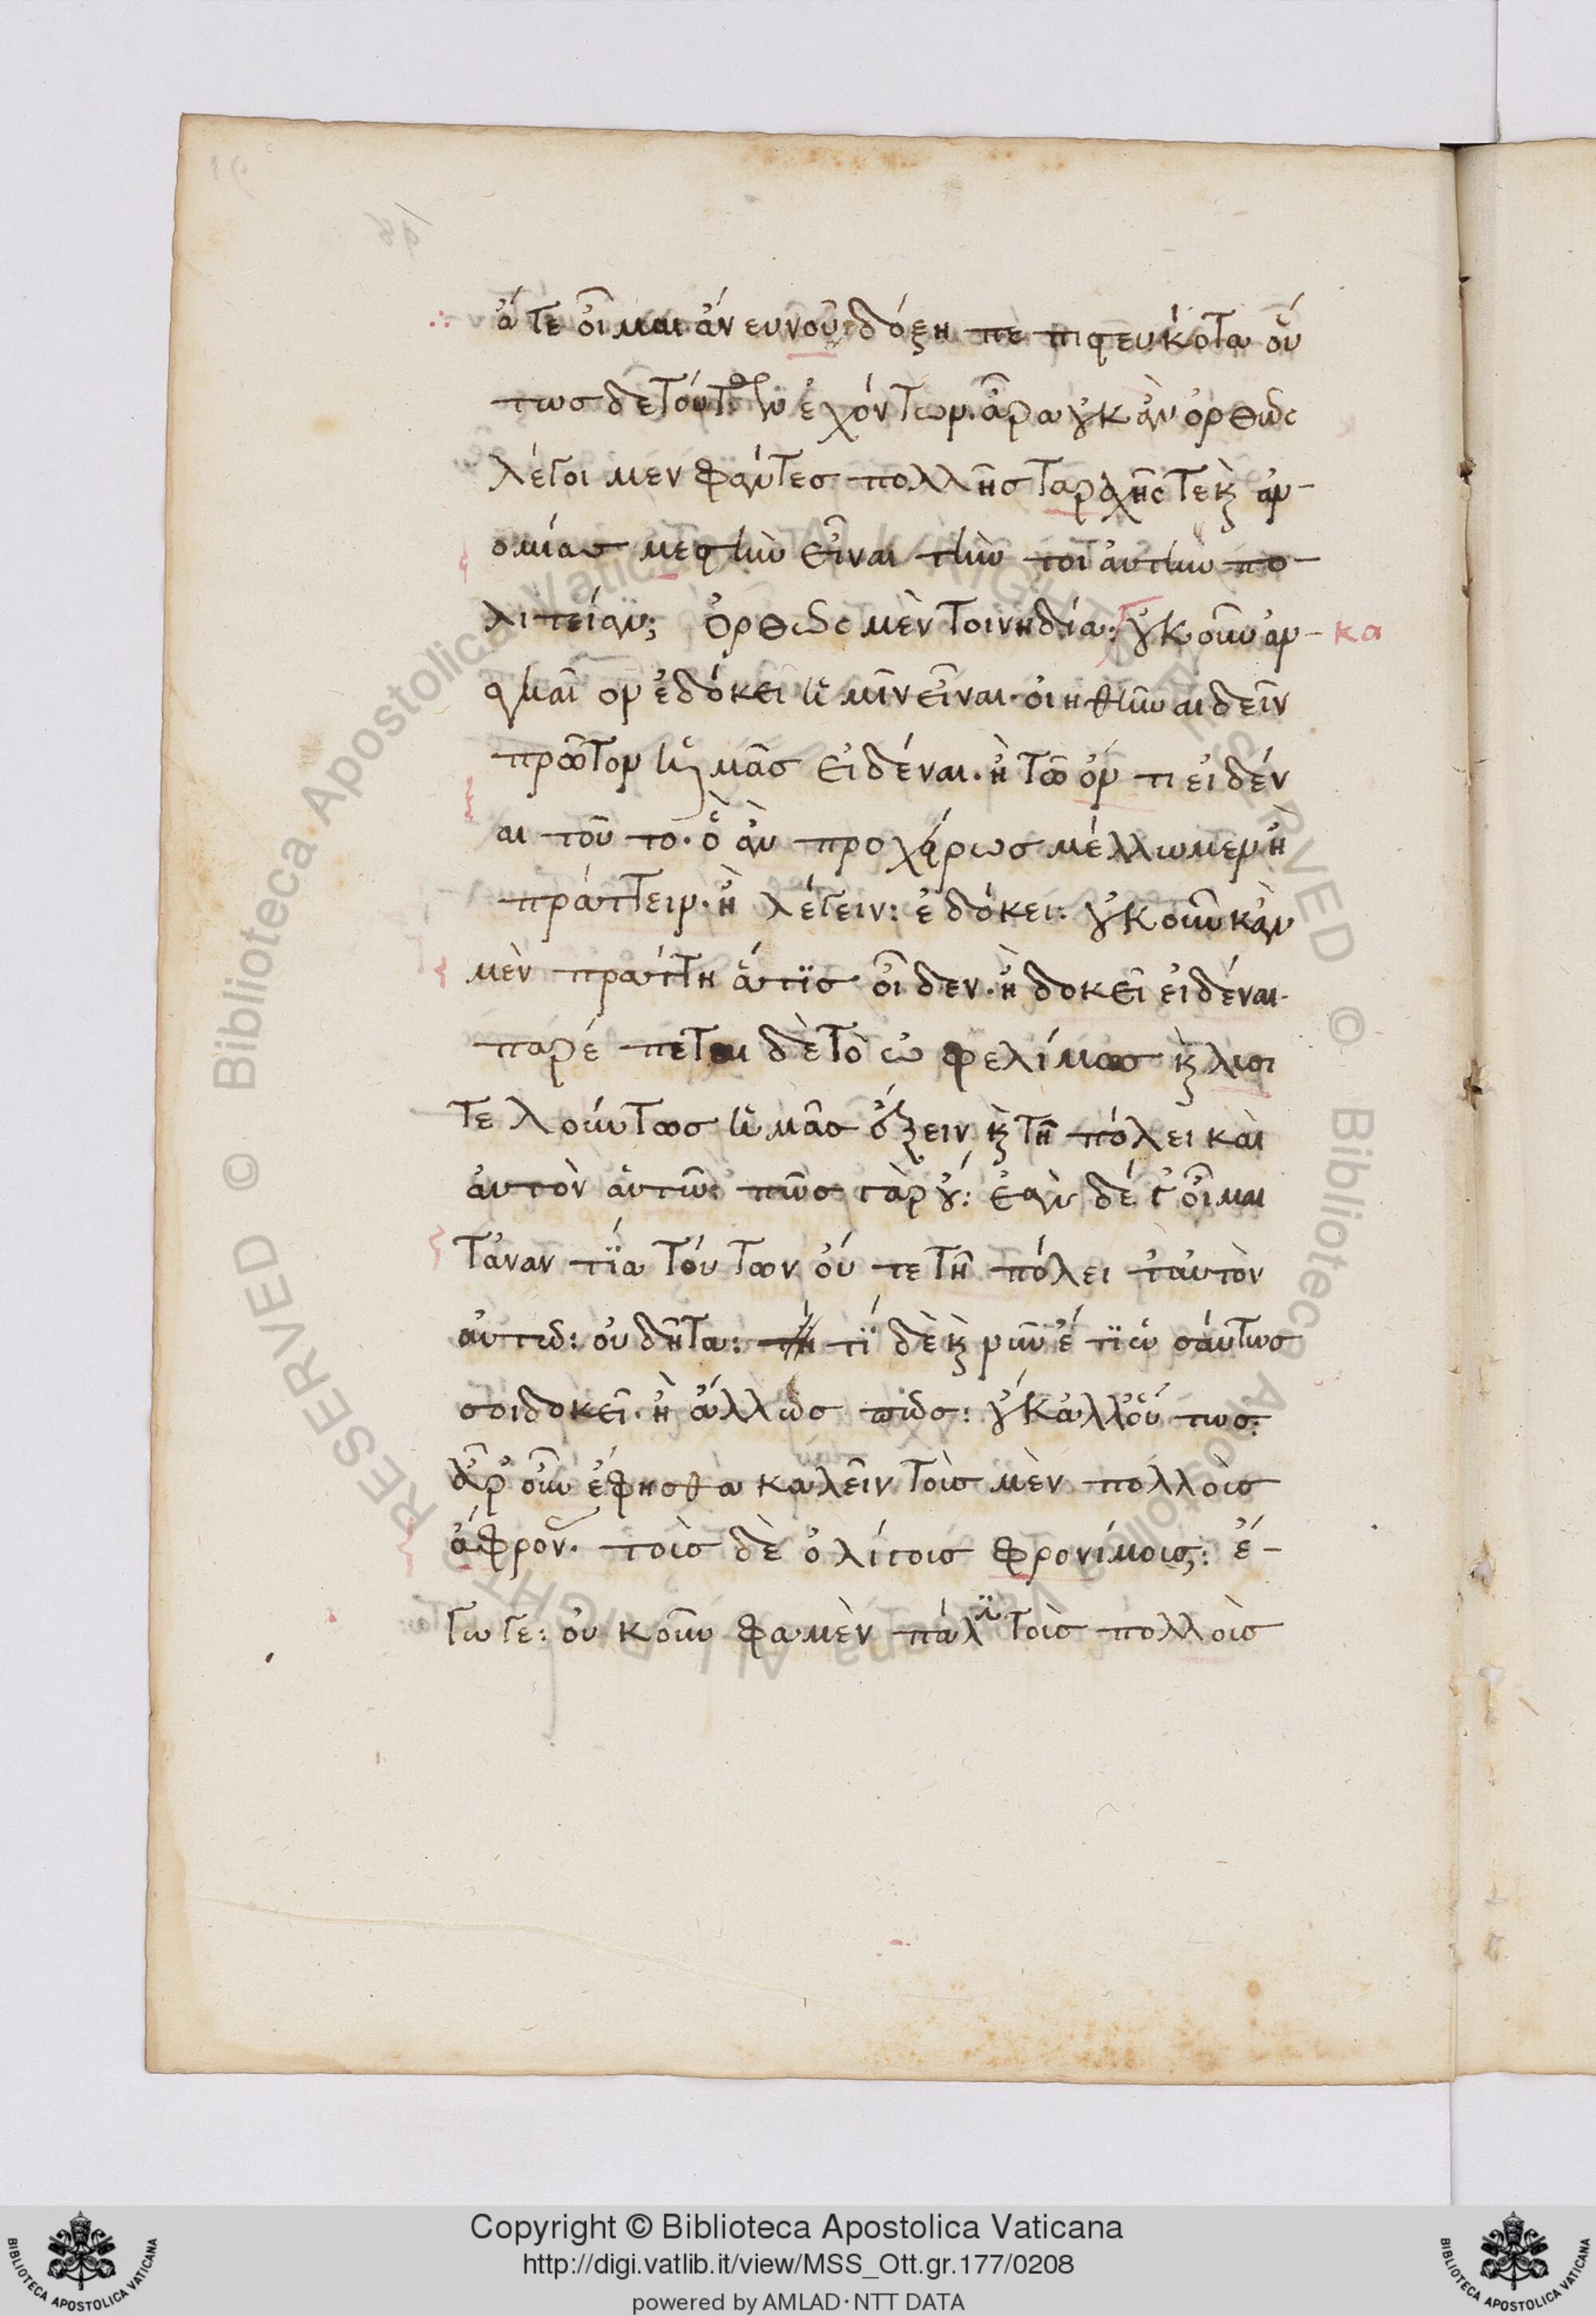 ἅτε οἶμαι ἄνευ νοῦ δόξη πεπιστευκότα οὕ
τως δὲ τούτων ἐχόντων. ἆρα οὐκ ἂν ὀρθῶς
λέγοιμεν φάντες πολλῆς ταραχῆς τε καὶ ἀν-
ομίας μεστὴν εἶναι τὴν τοιάυτην πο-
λιτείαν; ὀρθῶς μὲν τοι νηδία: οὐκοῦν ἀν- κα
αγκαῖον ἐδόκει ἡμῖν εἶναι. οἰηθῆναι δεῖν
πρῶτον ἡμᾶς εἰδέναι. ἢ τῶ ὄντι εἰδέν
αι τοῦτο. ὃ ἂν προχείρως μέλλωμεν ἢ
πράττειν. ἢ λέγειν: ἐδόκει: οὐκοῦν κἂν
μὲν πράττη ἅ τϊς οἶδεν. ἢ δοκεῖ εἰδέναι.
παρέπεται δὲ τὸ ὠφελίμως καὶ λυσι
τελούντως ἡμᾶς ἕξειν καὶ τῆ πόλει καὶ
ἀυτὸν ἁυτῶ: πῶς γὰρ οὔ: ἐὰν δέ γ' οἶμαι
τἀναντΐα τούτων οὔτε τῆ πόλει οὔτ' ἀυτὸν
ἁυτῶ: οὐ δῆτα: τΐ δὲ καὶ νῦν ἔτϊ ὡσάυτως
σοι δοκεῖ. ἢ ἄλλως πῶς: οὔκ ἀλλ' οὕτως:
ἆρ' οὖν ἔφησθα καλεῖν τοὺς μὲν πολλοὺς
ἄφρον. τοὺς δὲ ὀλίγους φρονίμους: ἔ-
γωγε: οὐκοῦν φαμὲν πάλϊν τοὺς πολλοὺς
Copyright © Biblioteca Apostolica Vaticana
http://digi.vatlib.it/view/MSS_Ott.gr.177/0208
powered by AMLAD·NTT DATA